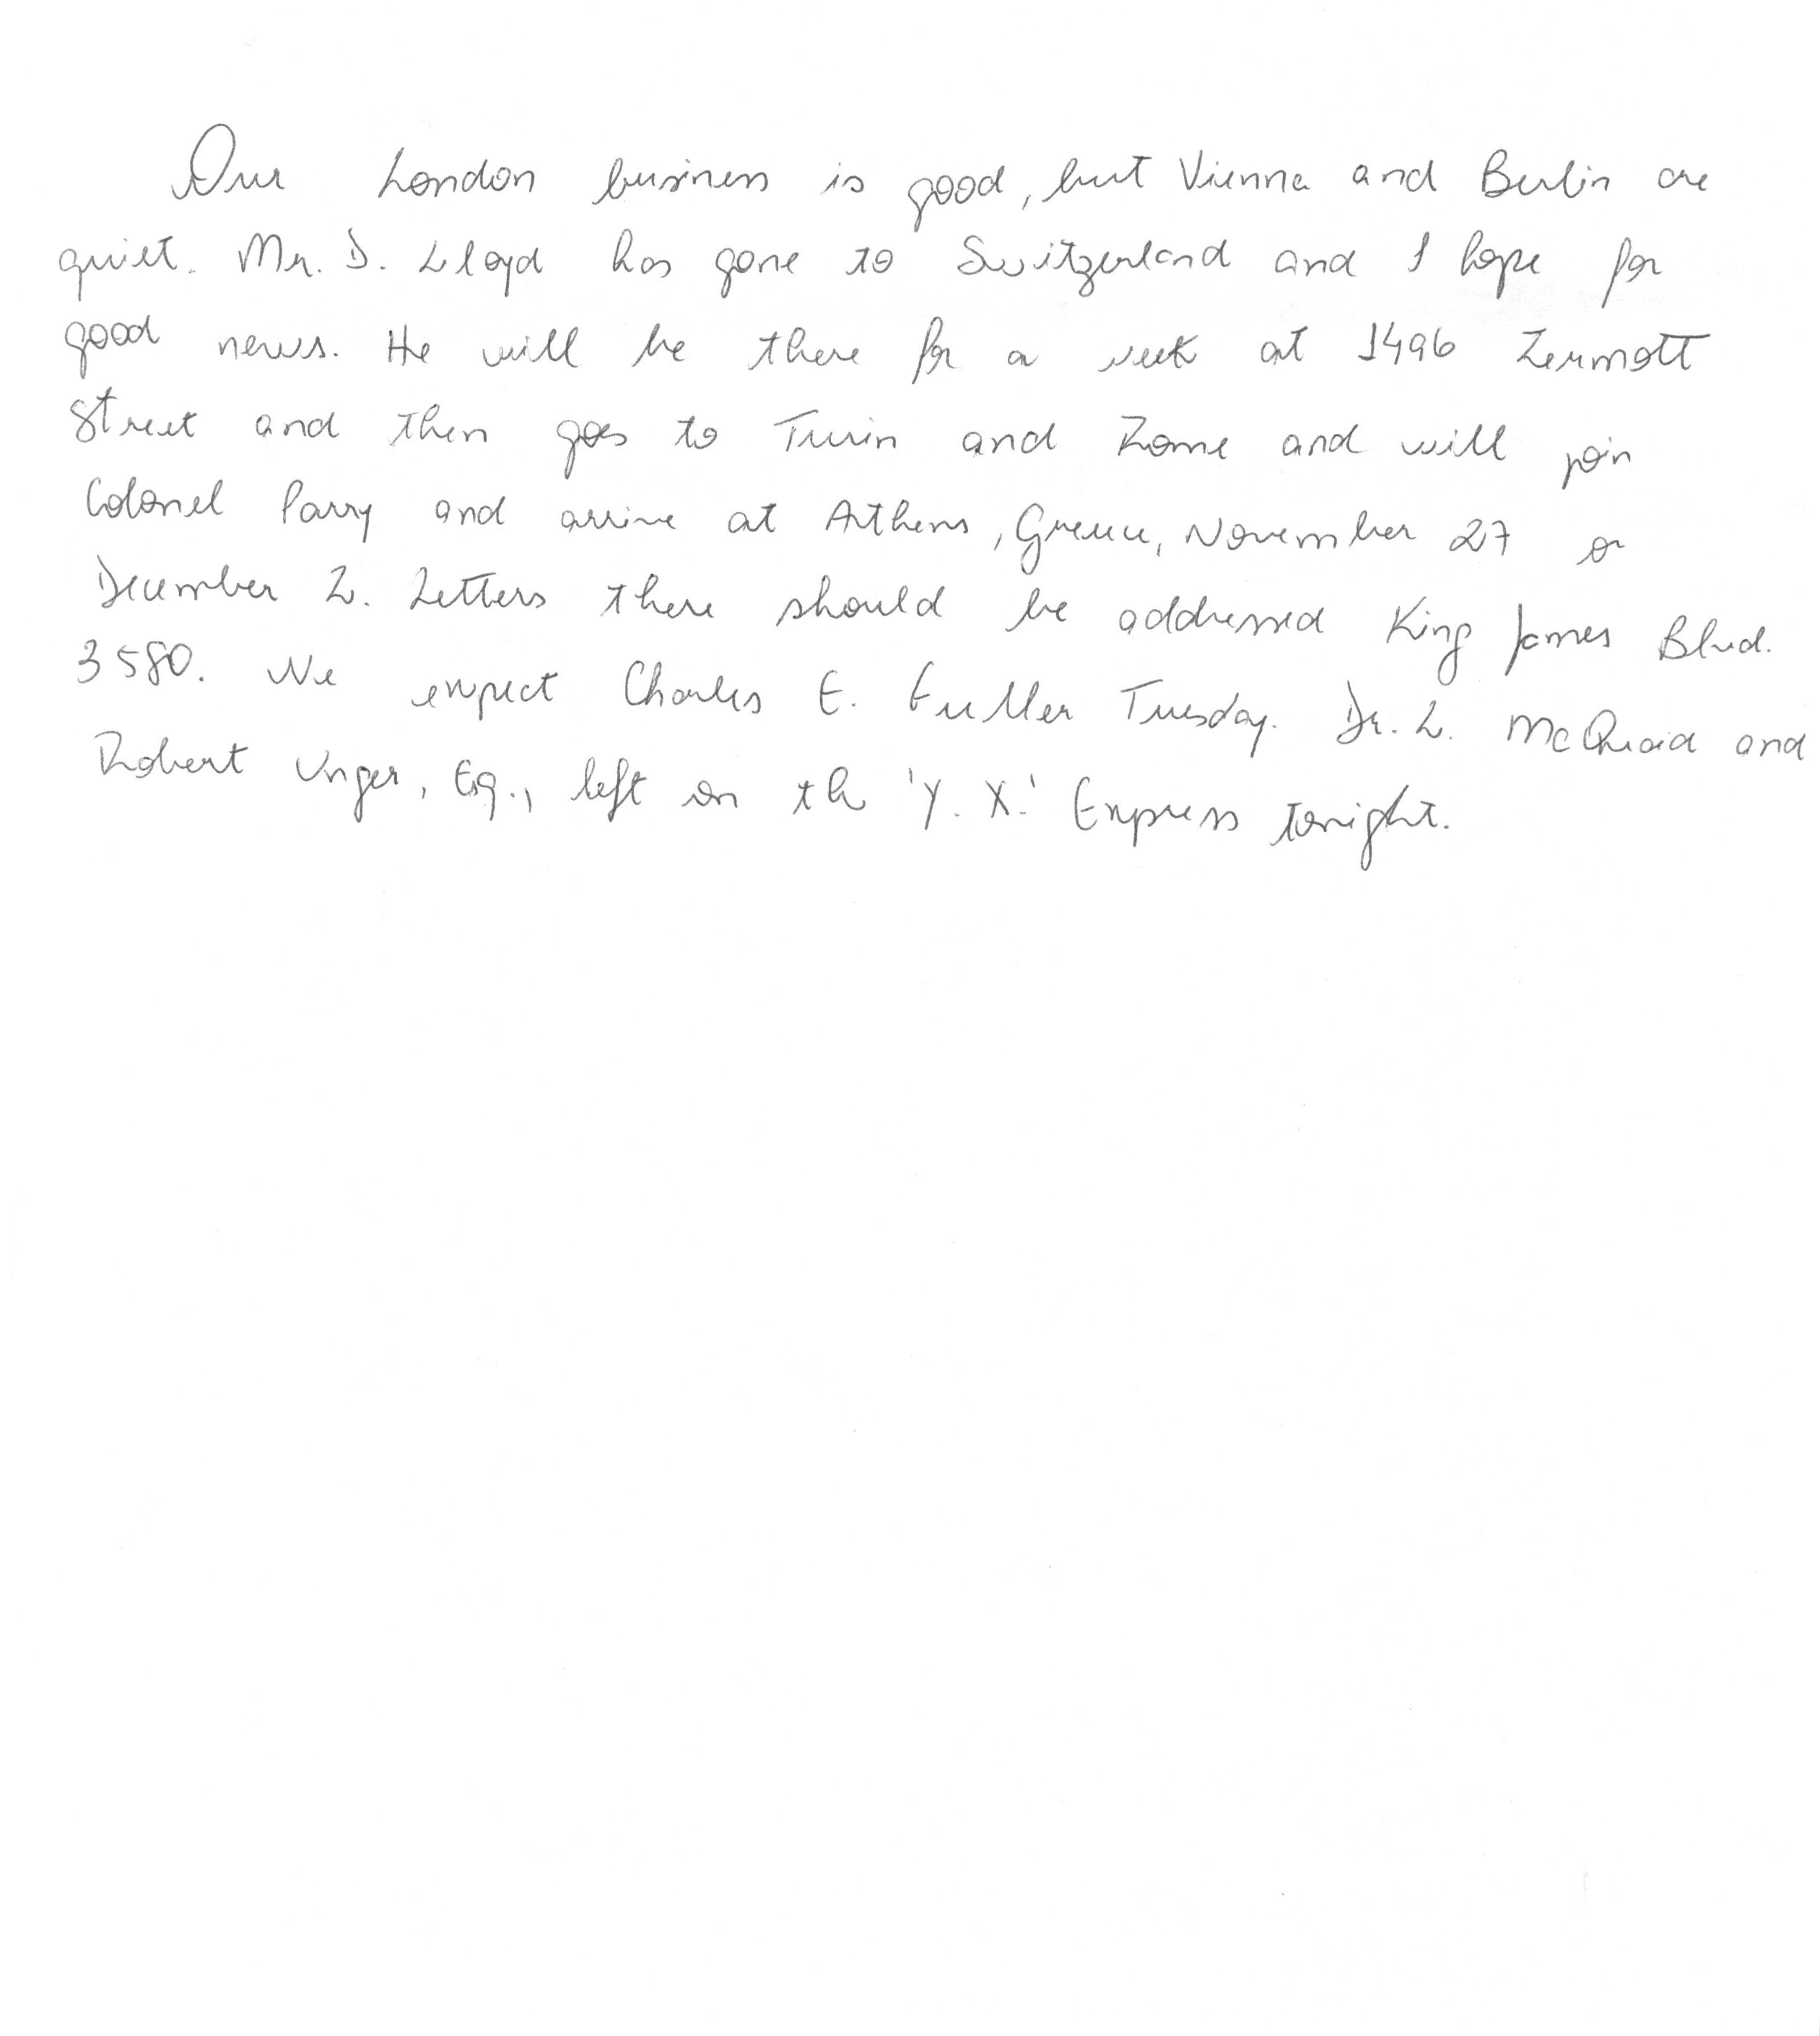 Our London business is good, but Vienna and Berlin are
quiet. Mr. D. Lloyd has gone to Switzerland and I hope for
good news. He will be there for a week at 1496 Zermott
Street and then goes to Turin and Rome and will join
Colonel Parry and arrive at Athens, Greece, November 27 or
December 2. Letters there should be addressed King James Blvd.
3580. We expect Charles E. Fuller Tuesday. Dr. L. McQuaid and
Robert Unger, Esq., left on the 'Y. X.' Express tonight.